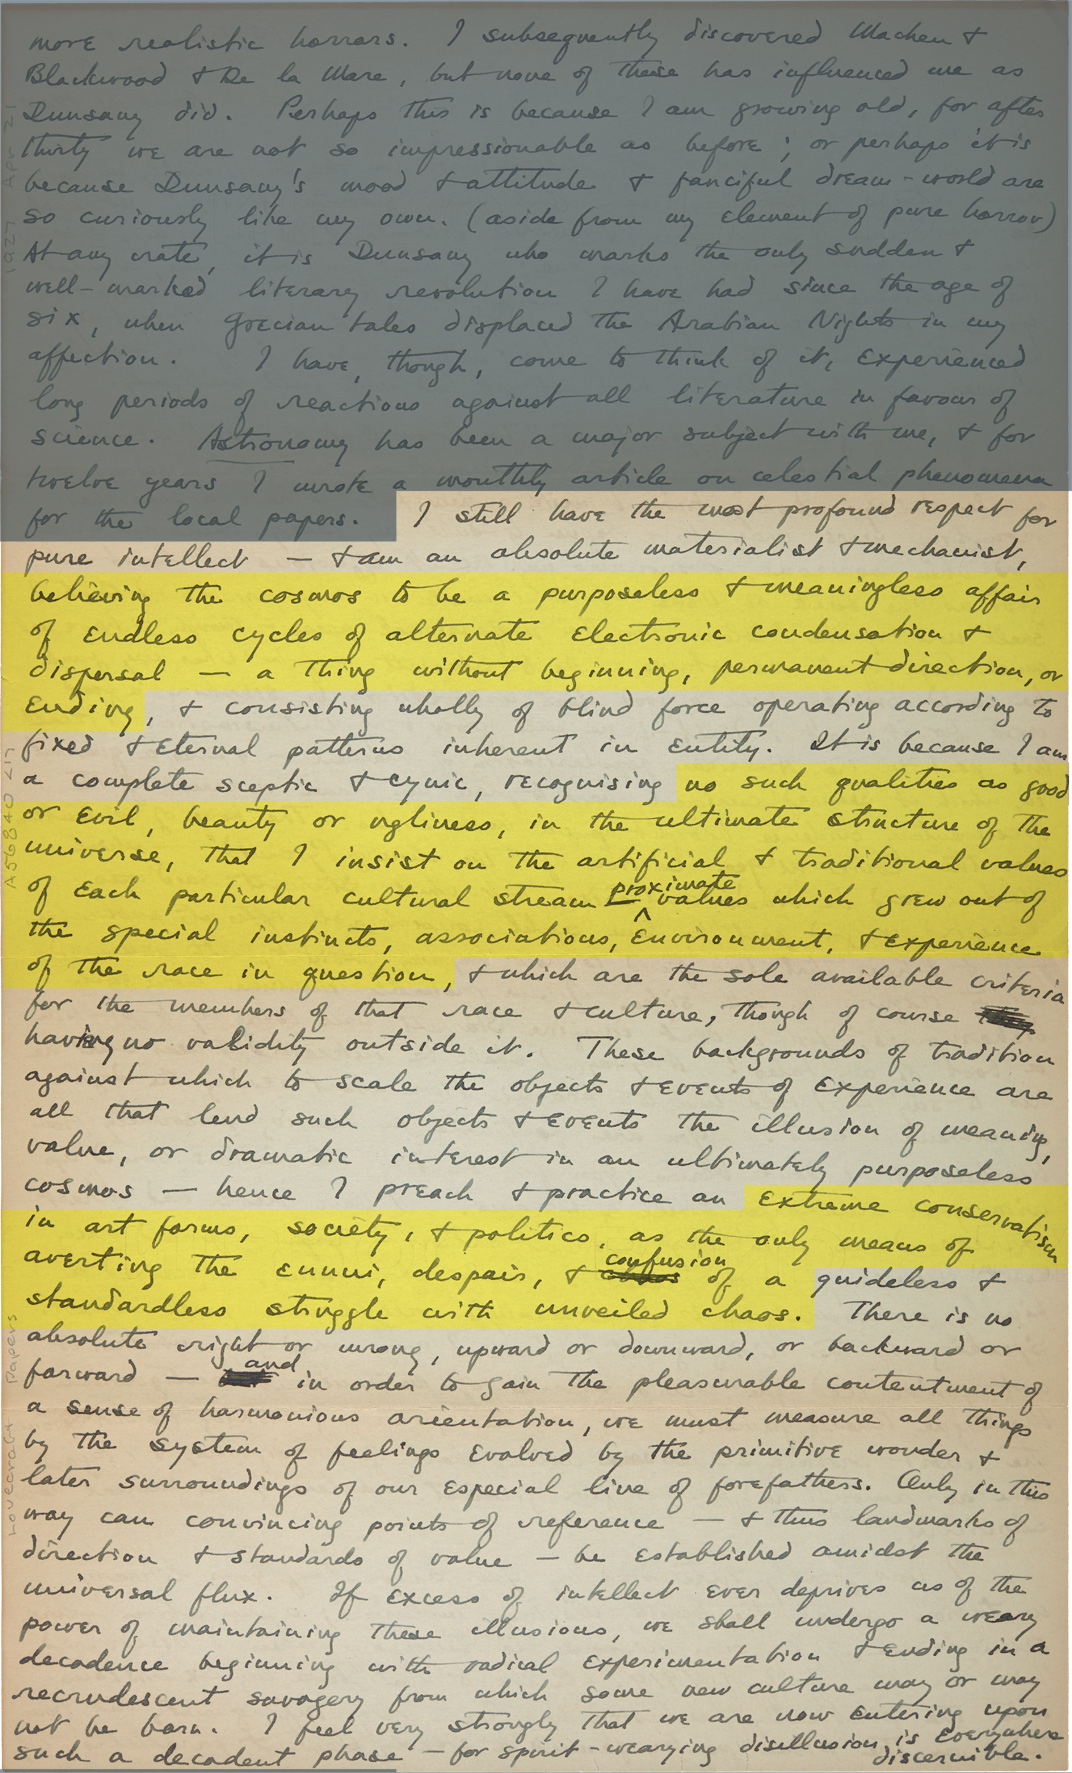 more realistic horrors. I subsequently discovered Machen &
Blackwood & De la Mare, but none of these has influenced me as
Dunsany did. Perhaps this is because I am growing old, for after
thirty we are not so impressionable as before; or perhaps it is
because Dunsany's mood & attitude & fanciful dream-world are
so curiously like my own. (aside from my element of pure horror)
At any rate, it is Dunsany who marks the only sudden &
well-marked literary revolution I have had since the age of
six, when Grecian tales displaced the Arabian Nights in my
affection. I have, though, come to think of it, experienced
long periods of reactions against all literature in favour of
science. Astronomy has been a major subject with me, & for
twelve years I wrote a monthly article on celestial phenomena
for the local papers. I still have the most profound respect for
pure intellect — & am an absolute materialist & mechanist,
believing the cosmos to be a purposeless & meaningless affair
of endless cycles of alternate electronic condensation &
dispersal — a thing without beginning, permanent direction, or
ending, & consisting wholly of blind force operating according to
fixed & eternal patterns inherent in entity. It is because I am
a complete sceptic & cynic, recognising no such qualities as good
or evil, beauty or ugliness, in the ultimate structure of the
universe, that I insist on the artificial & traditional values
of each particular cultural stream — proximate values which grew out of
the special instincts, associations, environment, & experience
of the race in question, & which are the sole available criteria
for the members of that race & culture, though of course
having no validity outside it. These backgrounds of tradition
against which to scale the objects & events of experience are
all that lend such objects & events the illusion of meaning,
value, or dramatic interest in an ultimately purposeless
cosmos — hence I preach & practice an extreme conservatism
in art forms, society, & politics, as the only means of
averting the ennui, despair, & confusion of a guideless &
standardless struggle with unveiled chaos. There is no
absolute right or wrong, upward or downward, or backward or
forward — and in order to gain the pleasurable contentment of
a sense of harmonious orientation, we must measure all things
by the system of feelings evolved by the primitive wonder &
later surroundings of our especial line of forefathers. Only in this
way can convincing points of reference — & thus landmarks of
direction & standards of value — be established amidst the
universal flux. If excess of intellect ever deprives us of the
power of maintaining these illusions, we shall undergo a weary
decadence beginning with radical experimentation & ending in a
recrudescent savagery from which some new culture may or may
not be born. I feel very strongly that we are now entering upon
such a decadent phase — for spirit-wearying disillusion is everywhere
discernible.
1927 Apr 21
A56840
Lovecraft Papers